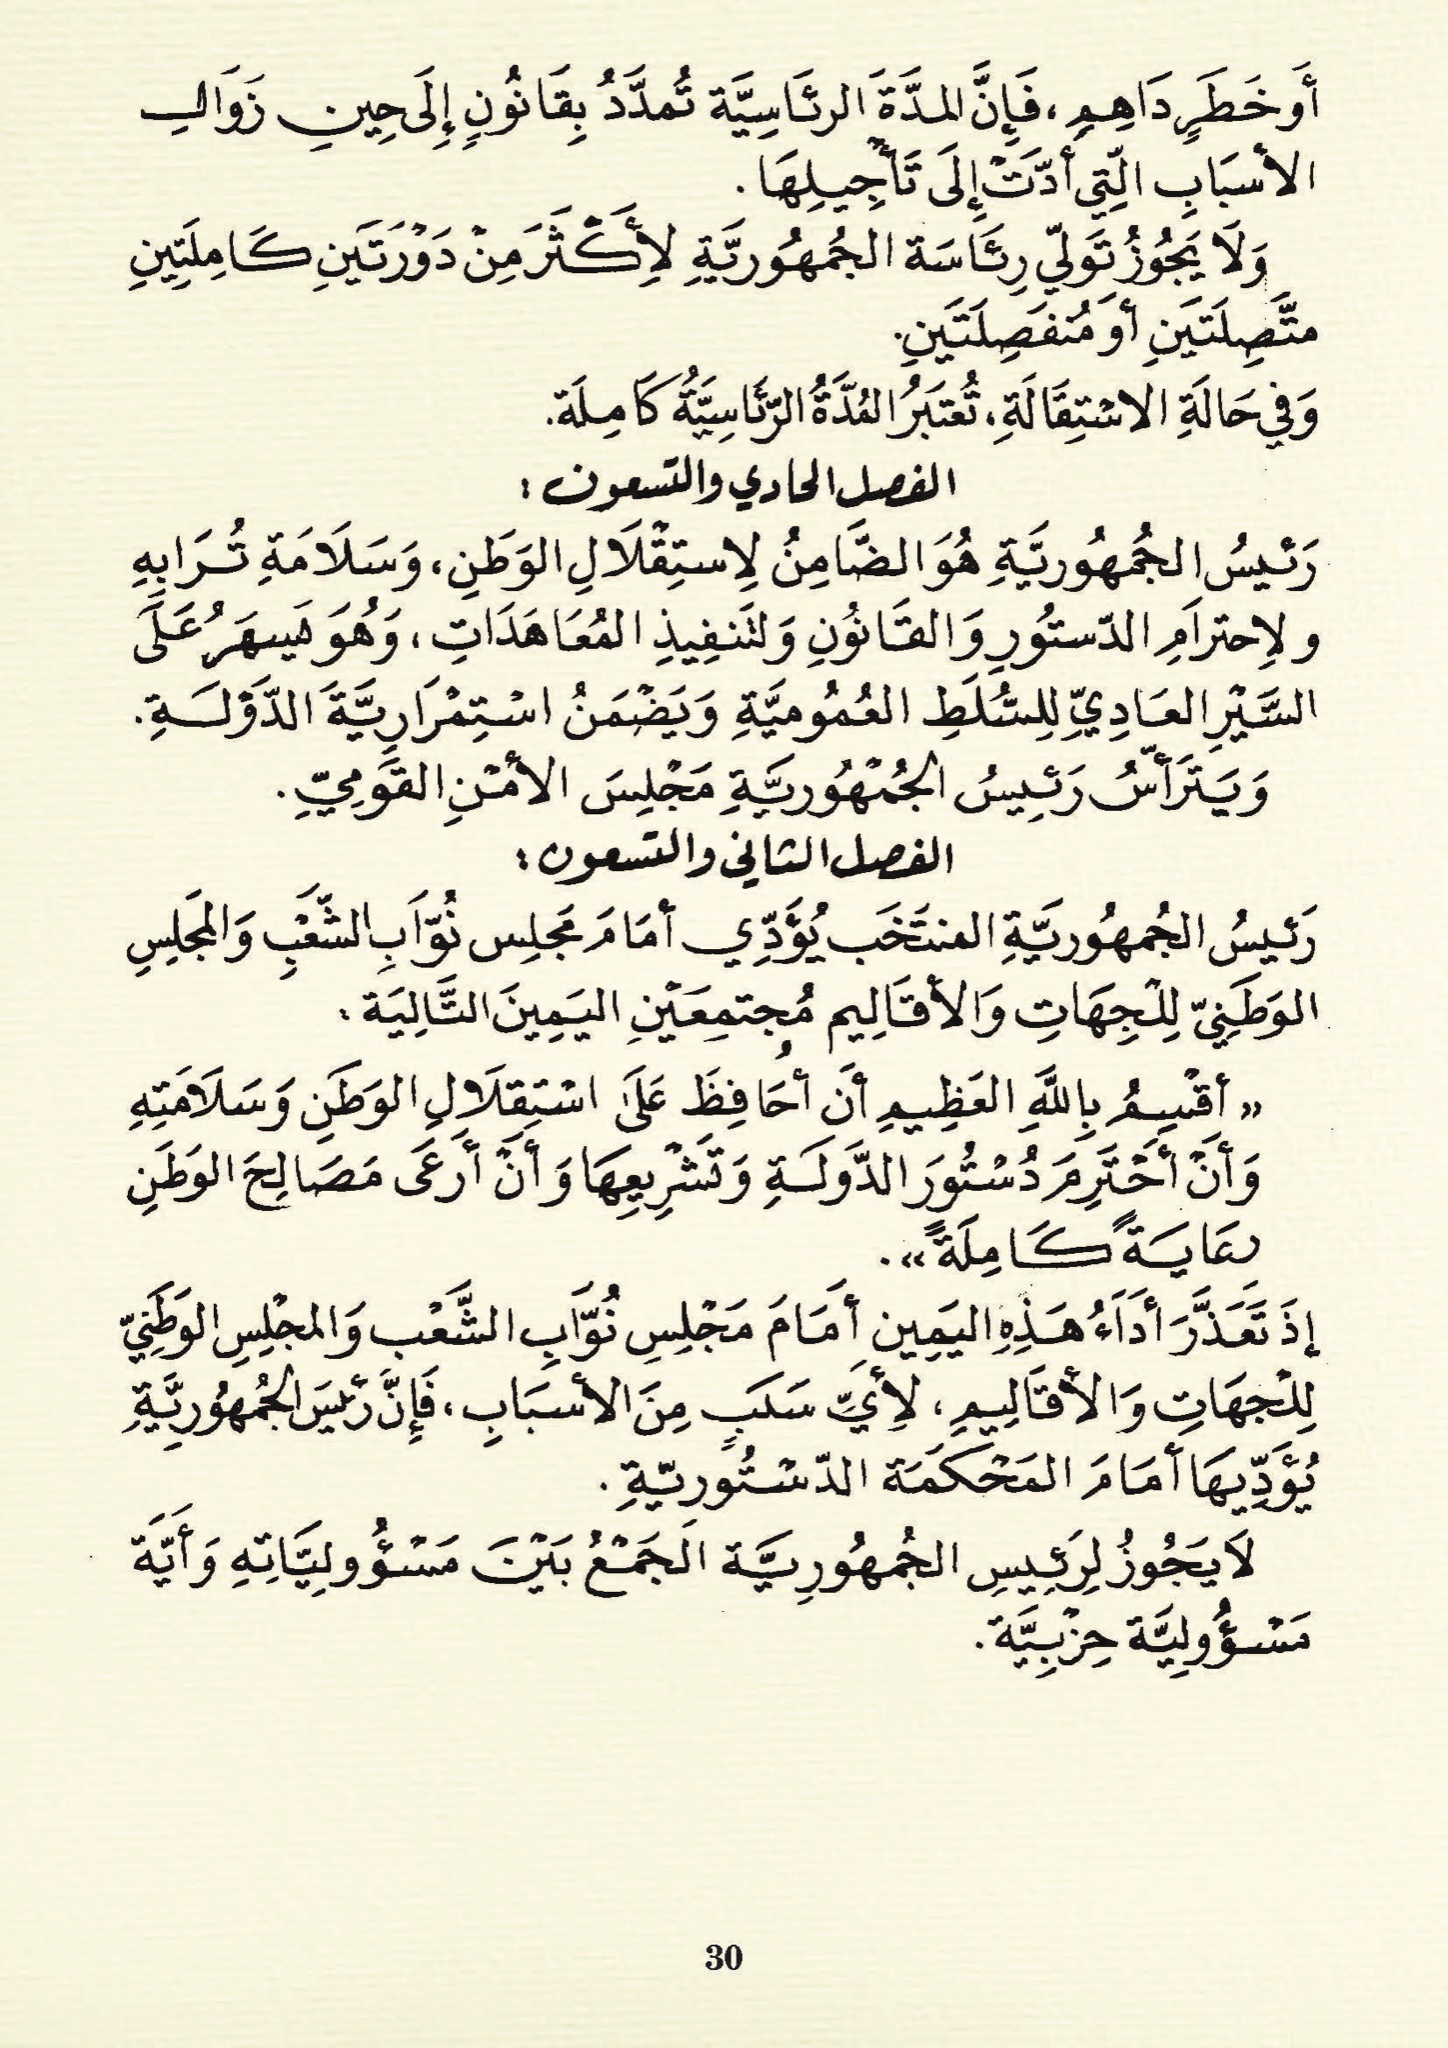 أَو خَطَرٍ دَاهِمٍ، فَإِنَّ المدَّةَ الرئَاسِيَّة تُمدَّدُ بِقَانُونٍ إِلَى حِينِ زَوَالِ
الأسبَابِ الّتِي أدّتْ إِلَى تَأْجِيلِهَا.
وَلَا يَجُوزُ تَوَلّي رِئَاسَة الجُمهُورِيَّةِ لأِكْثَرَ مِنْ دَوْرَتَينِ كَامِلَتِينِ
متَّصِلَتَينِ أو مُنفَصِلَتَينِ.
وَفِي حَالَةِ الاسْتِقَالَةِ، تُعتَبَرُ المُدَّةُ الرّئَاسِيَّةُ كَامِلَة.
الفصل الحادي والتسعون:
رَئيسُ الجُمهُوريَّةِ هُوَ الضَّامِنُ لِاستِقْلَالِ الوَطَنِ، وَسَلَامَةِ تُرَابِهِ
ولِاحتراَمِ الدّستُورِ وَالقَانُونِ وَلتَنفِيذِ المُعَاهَدَاتِ، وَهُوَ يَسهَرُ عَلَى
السَّيْرِ العَادِيِّ لِلسُّلَطِ العُمُوميَّةِ وَيَضْمَنُ اسْتِمْرَارِيَّةَ الدَّوْلَةِ.
وَيَتَرَأّسُ رَئِيسُ الجُمْهُوريَّةِ مَجْلِسَ الأمْنِ القَوْمِيّ.
الفصل الثاني والتسعون:
رَئيسُ الجُمهُوريَّةِ المنتَخَب يُؤَدِّي أمَامَ مَجلِس نُوّاَبِ الشَّعْبِ وَالمَجلِسِ
الوَطَنِيّ لِلْجِهَاتِ وَالأقَالِيم مُجتمِعَيْنِ اليَمِينَ التَّالِيَة:
«أقْسِمُ بِاللّهِ العَظِيمِ أنَ أحَافِظَ عَلَى اسْتِقلَالِ الوَطَنِ وَسَلَامَتِهِ
وَأنْ أحْتَرِمَ دُسْتُورَ الدَّوْلَةِ وَتَشْرِيعِهَا وَأنْ أرعَى مَصَالِحَ الوَطَنِ
رعَايَةً كَامِلَةً».
إذَ تَعَذَّرَ أدَاءُ هَذِهِ اليَمِين أمَامَ مَجْلِسِ نُوّابِ الشَّعْب وَالمجْلِسِ الوَطَنِيّ
لِلْجهَاتِ وَالأقَالِيمِ، لِأيِّ سَبَبٍ مِنَ الأسبَابِ، فَإِنَّ رَئيسَ الجُمهُورِيَّةِ
يُؤَدِّيهَا أمَامَ المَحْكَمَة الدّسْتُوريّةِ.
لَا يَجُوزُ لِرَئِيسِ الجُمهُورِيَّة الَجَمْعُ بَيْنَ مَسْؤُوليَّاتِهِ وَأيَّة
مَسْؤُولِيَّة حِزْبِيَّة.
30